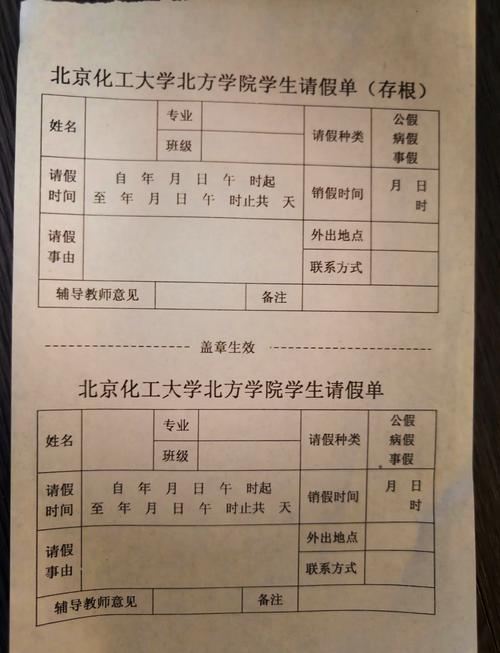 北京化工大学北方学院学生请假单（存根）
姓名 专业 请假种类 公假
班级 病假
事假
请假时间 自 年 月 日 午 时起 销假时间 月 日
至 年 月 日 午 时止共 天 时
请假事由 外出地点
联系方式
辅导教师意见 备注
盖章生效
北京化工大学北方学院学生请假单
姓名 专业 请假种类 公假
班级 病假
事假
请假时间 自 年 月 日 午 时起 销假时间 月 日
至 年 月 日 午 时止共 天 时
请假事由 外出地点
联系方式
辅导教师意见 备注